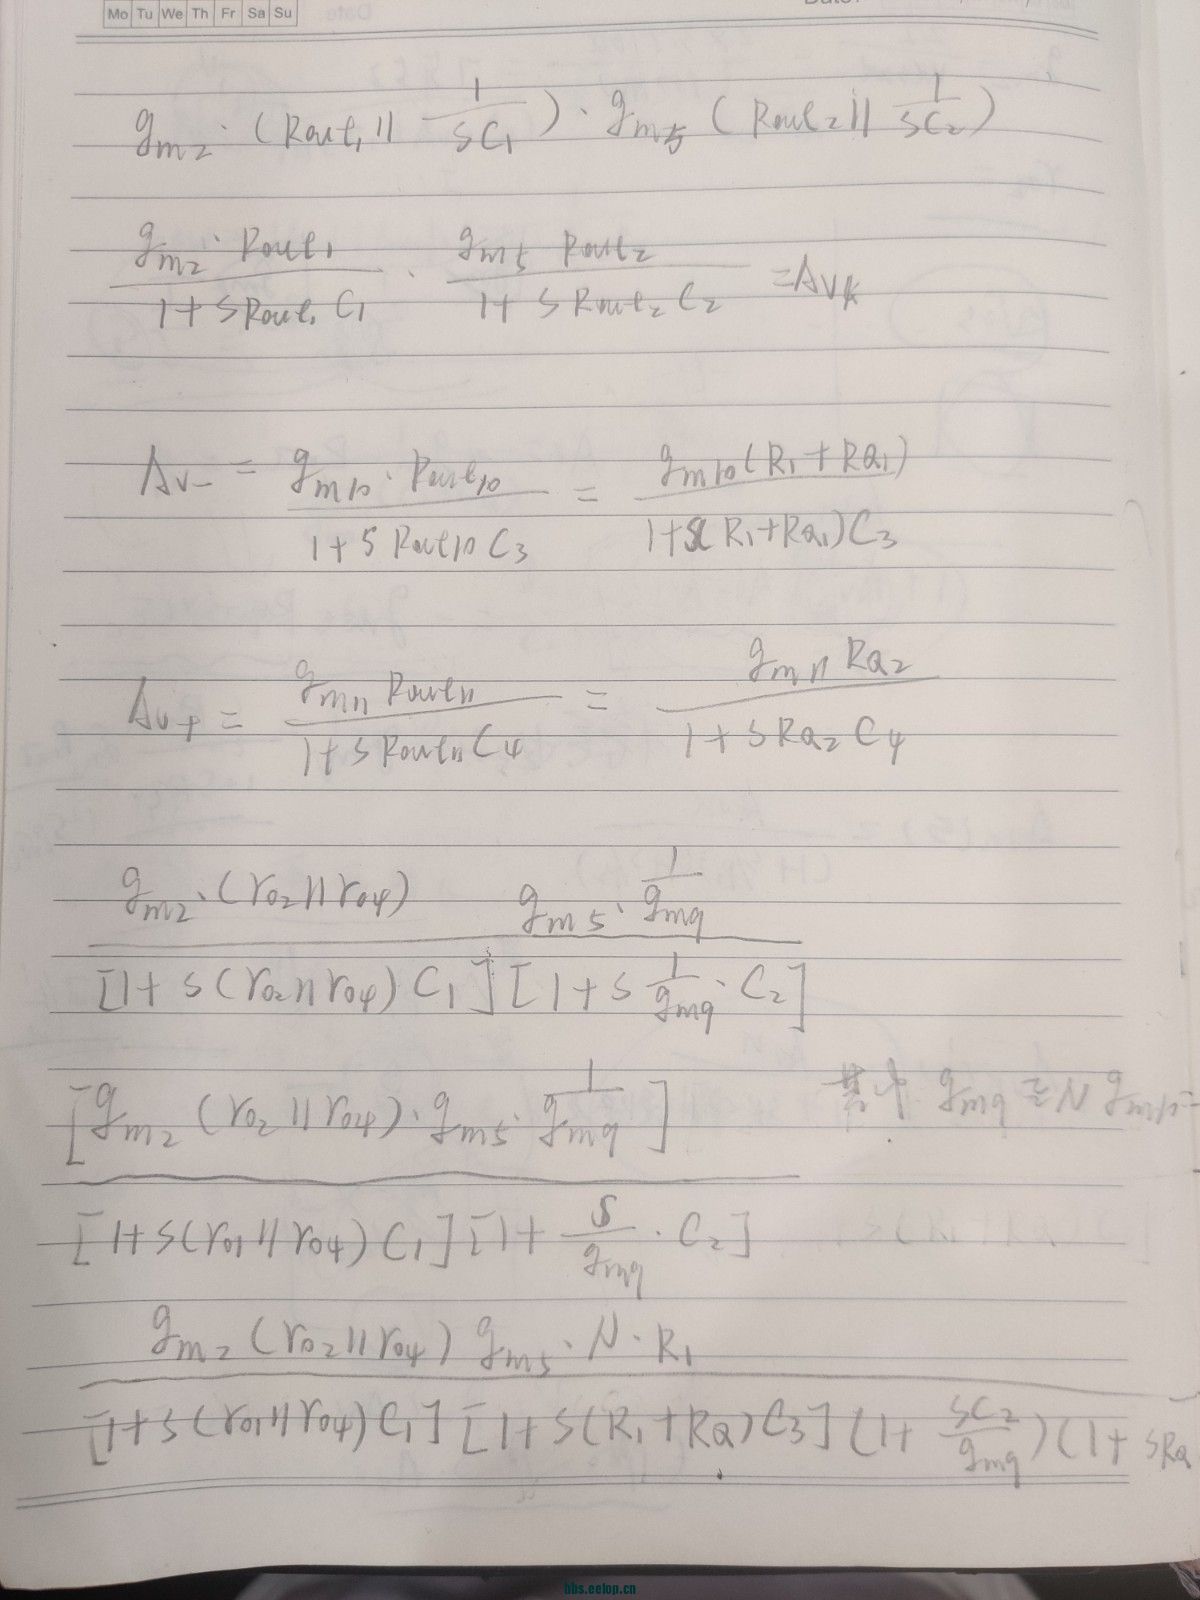 Mo Tu We Th Fr Sa Su
gm2 · (Rout1 || 1/SC1) · gm5 (Rout2 || 1/SC2)
gm2 · Rout1 / 1+SRout1C1 · gm5 Rout2 / 1+SRout2C2 = AVK
AV- = gm10 · Rout10 / 1+SRout10C3 = gm10(R1+RQ1) / 1+S(R1+RQ1)C3
AV+ = gm11 Rout11 / 1+SRout11C4 = gm11 RQ2 / 1+SRQ2C4
gm2 · (ro2||ro4) gm5 · 1/gm9
[1+S(ro2||ro4)C1][1+S 1/gm9 · C2]
[gm2(ro2||ro4) · gm5 · 1/gm9] 其中 gm9 = N gm10 =
[1+S(ro1||ro4)C1][1+ S/gm9 · C2]
gm2(ro2||ro4) gm5 · N · R1
[1+S(ro1||ro4)C1][1+S(R1+RQ)C3](1+ SC2/gm9)(1+SRQ
bbs.eetop.cn